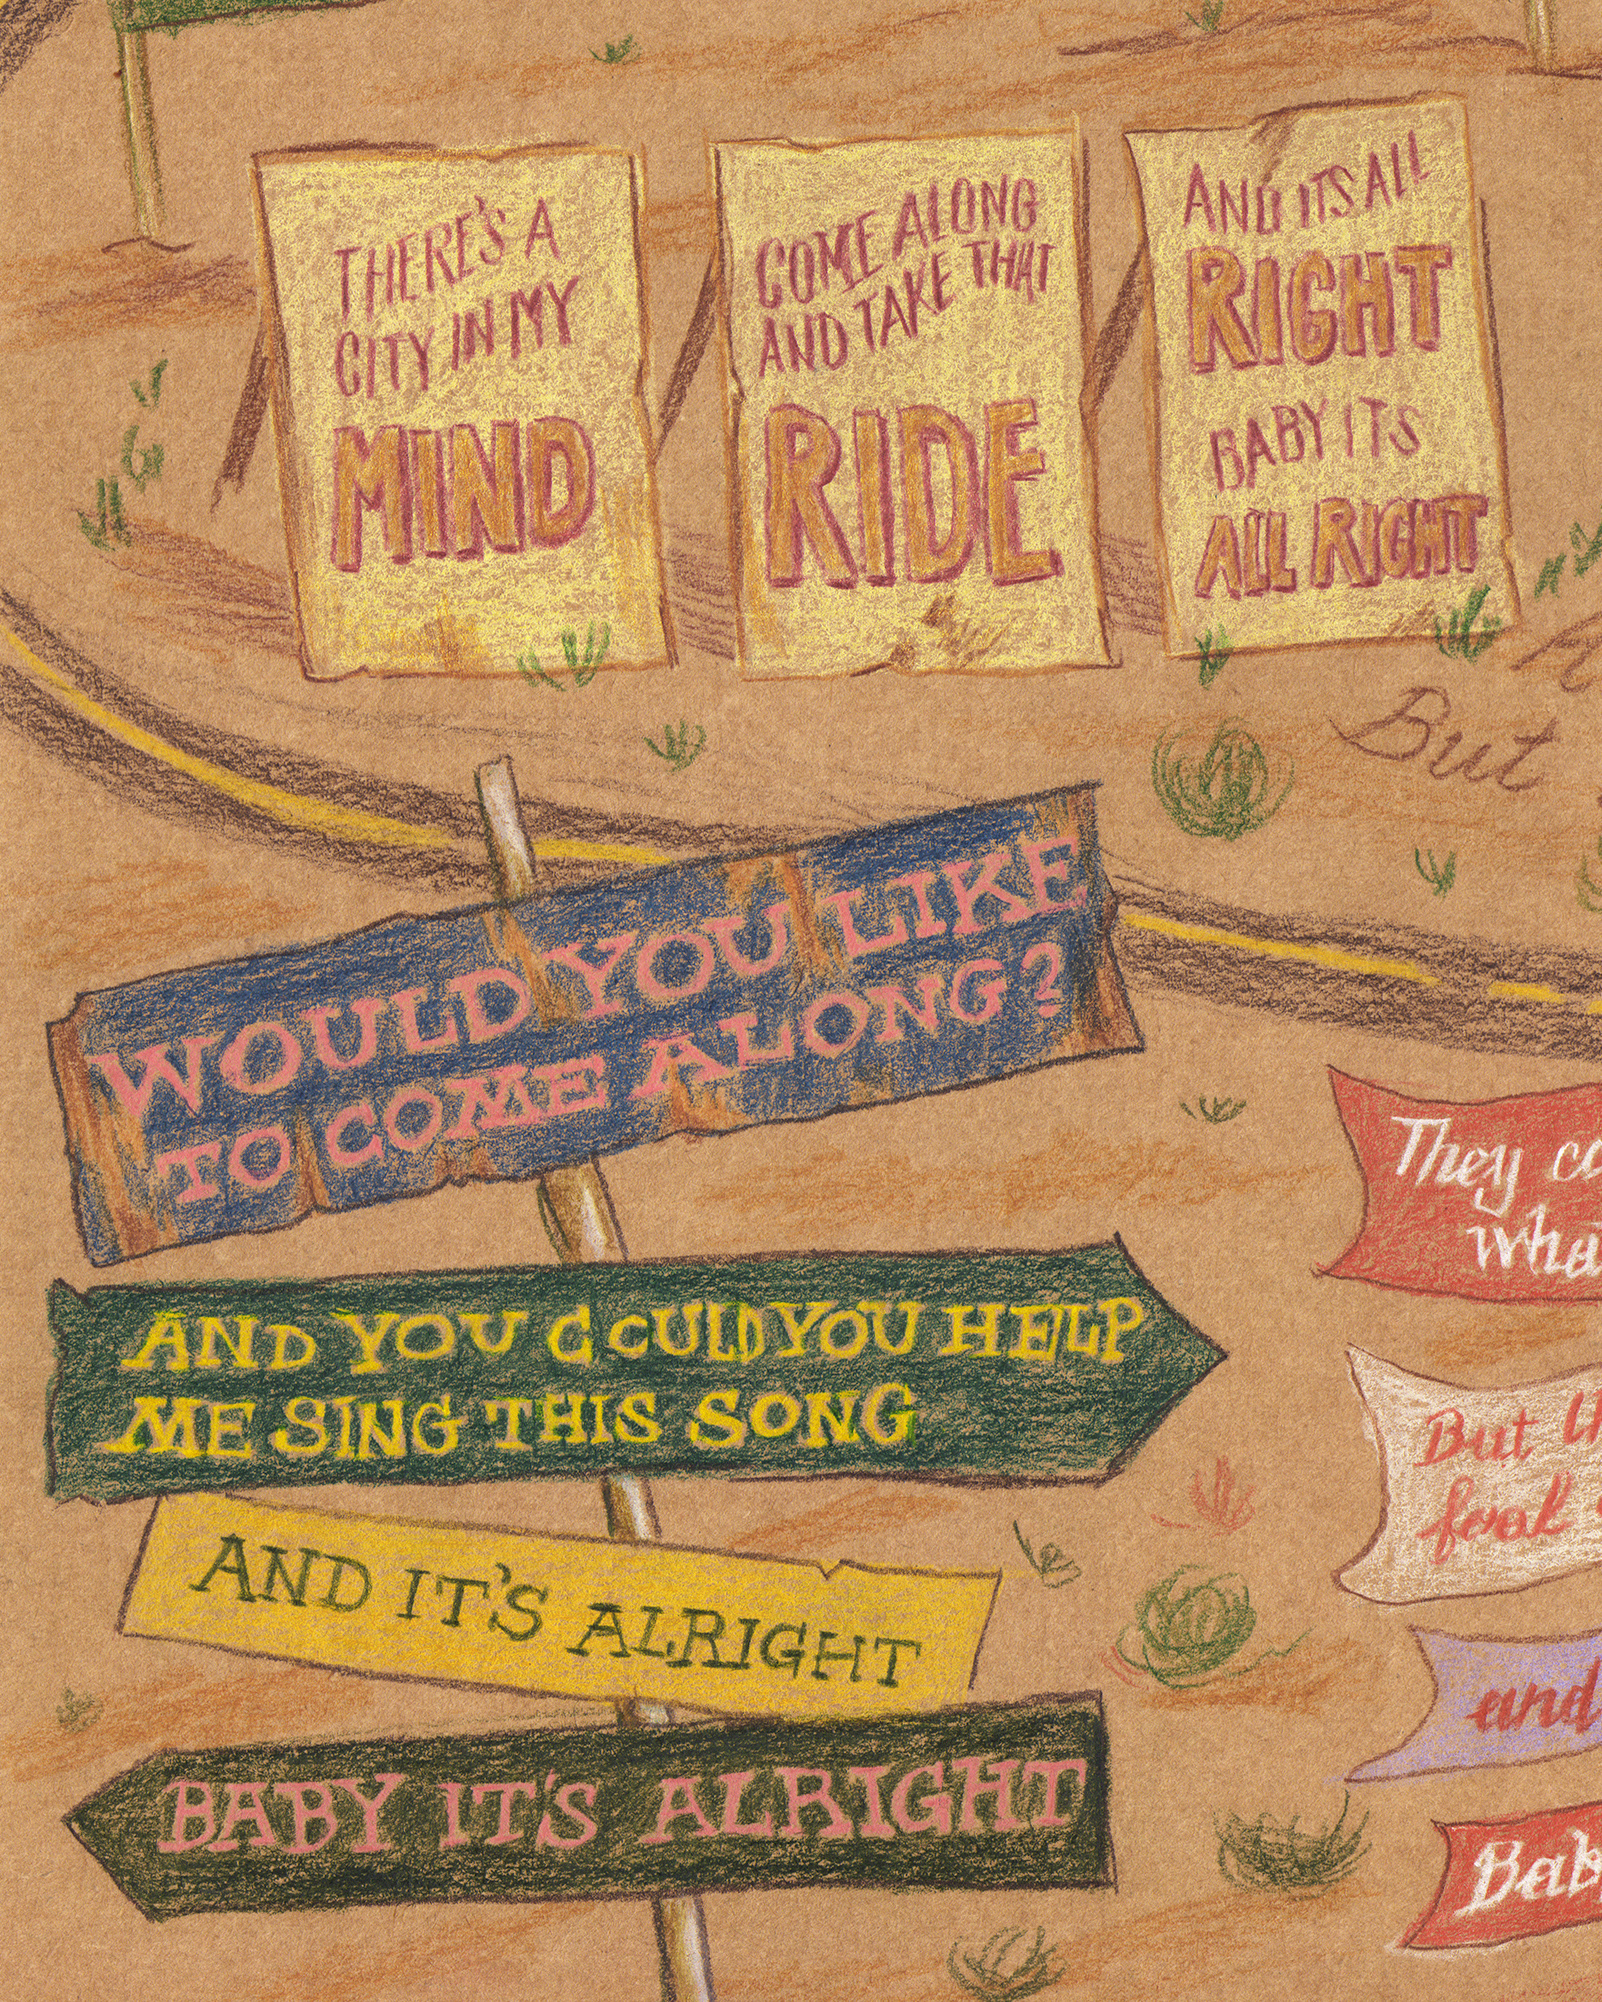 THERE'S A
CITY IN MY
MIND
COME ALONG
AND TAKE THAT
RIDE
AND ITS ALL
RIGHT
BABY ITS
ALL RIGHT
But
WOULD YOU LIKE
TO COME ALONG?
AND YOU COULD YOU HELP
ME SING THIS SONG
AND IT'S ALRIGHT
BABY IT'S ALRIGHT
They
But
and